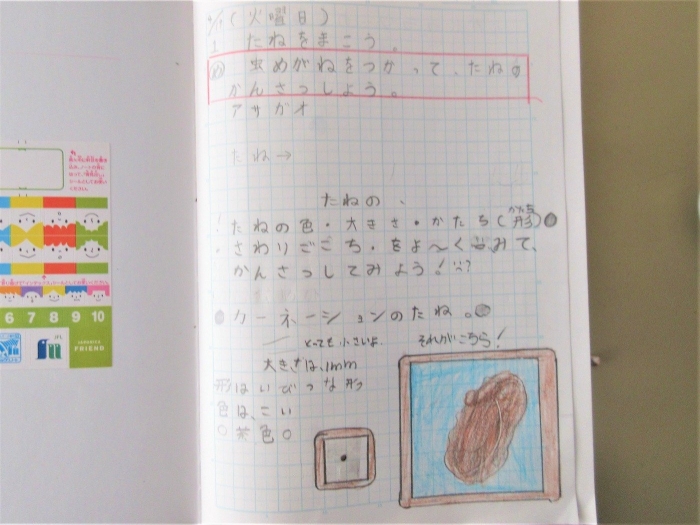 (火曜日)
1 たねをまこう。
め 虫めがねをつかって、たねの
かんさつしよう。
アサガオ
たね→
たねの、
たねの色・大きさ・かたち(形)
かたち
さわりごごち・をよ〜くみて、
かんさつしてみよう!
カーネーションのたね。
とっても小さいよ
それがこちら!
大きさは、1mm
形はいびつな形
色は、こい
○茶色○
6 7 8 9 10
FRIEND